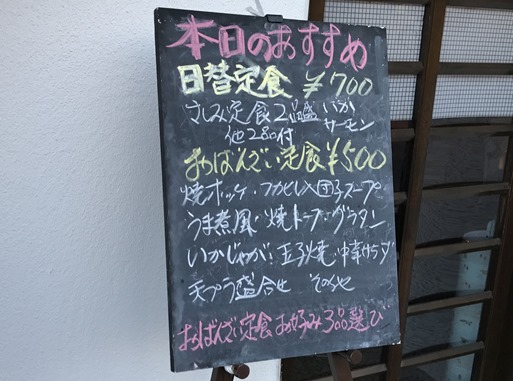 本日のおすすめ
日替定食 ¥700
さしみ定食2品盛 いか サーモン
他2品付
おばんざい定食¥500
焼ホッケ・フカヒレ入団子スープ
うま煮風・焼トーフ・グラタン
いかじゃが・玉子焼・中華サラダ
天プラ盛合せ その他
おばんざい定食 お好み3品選び